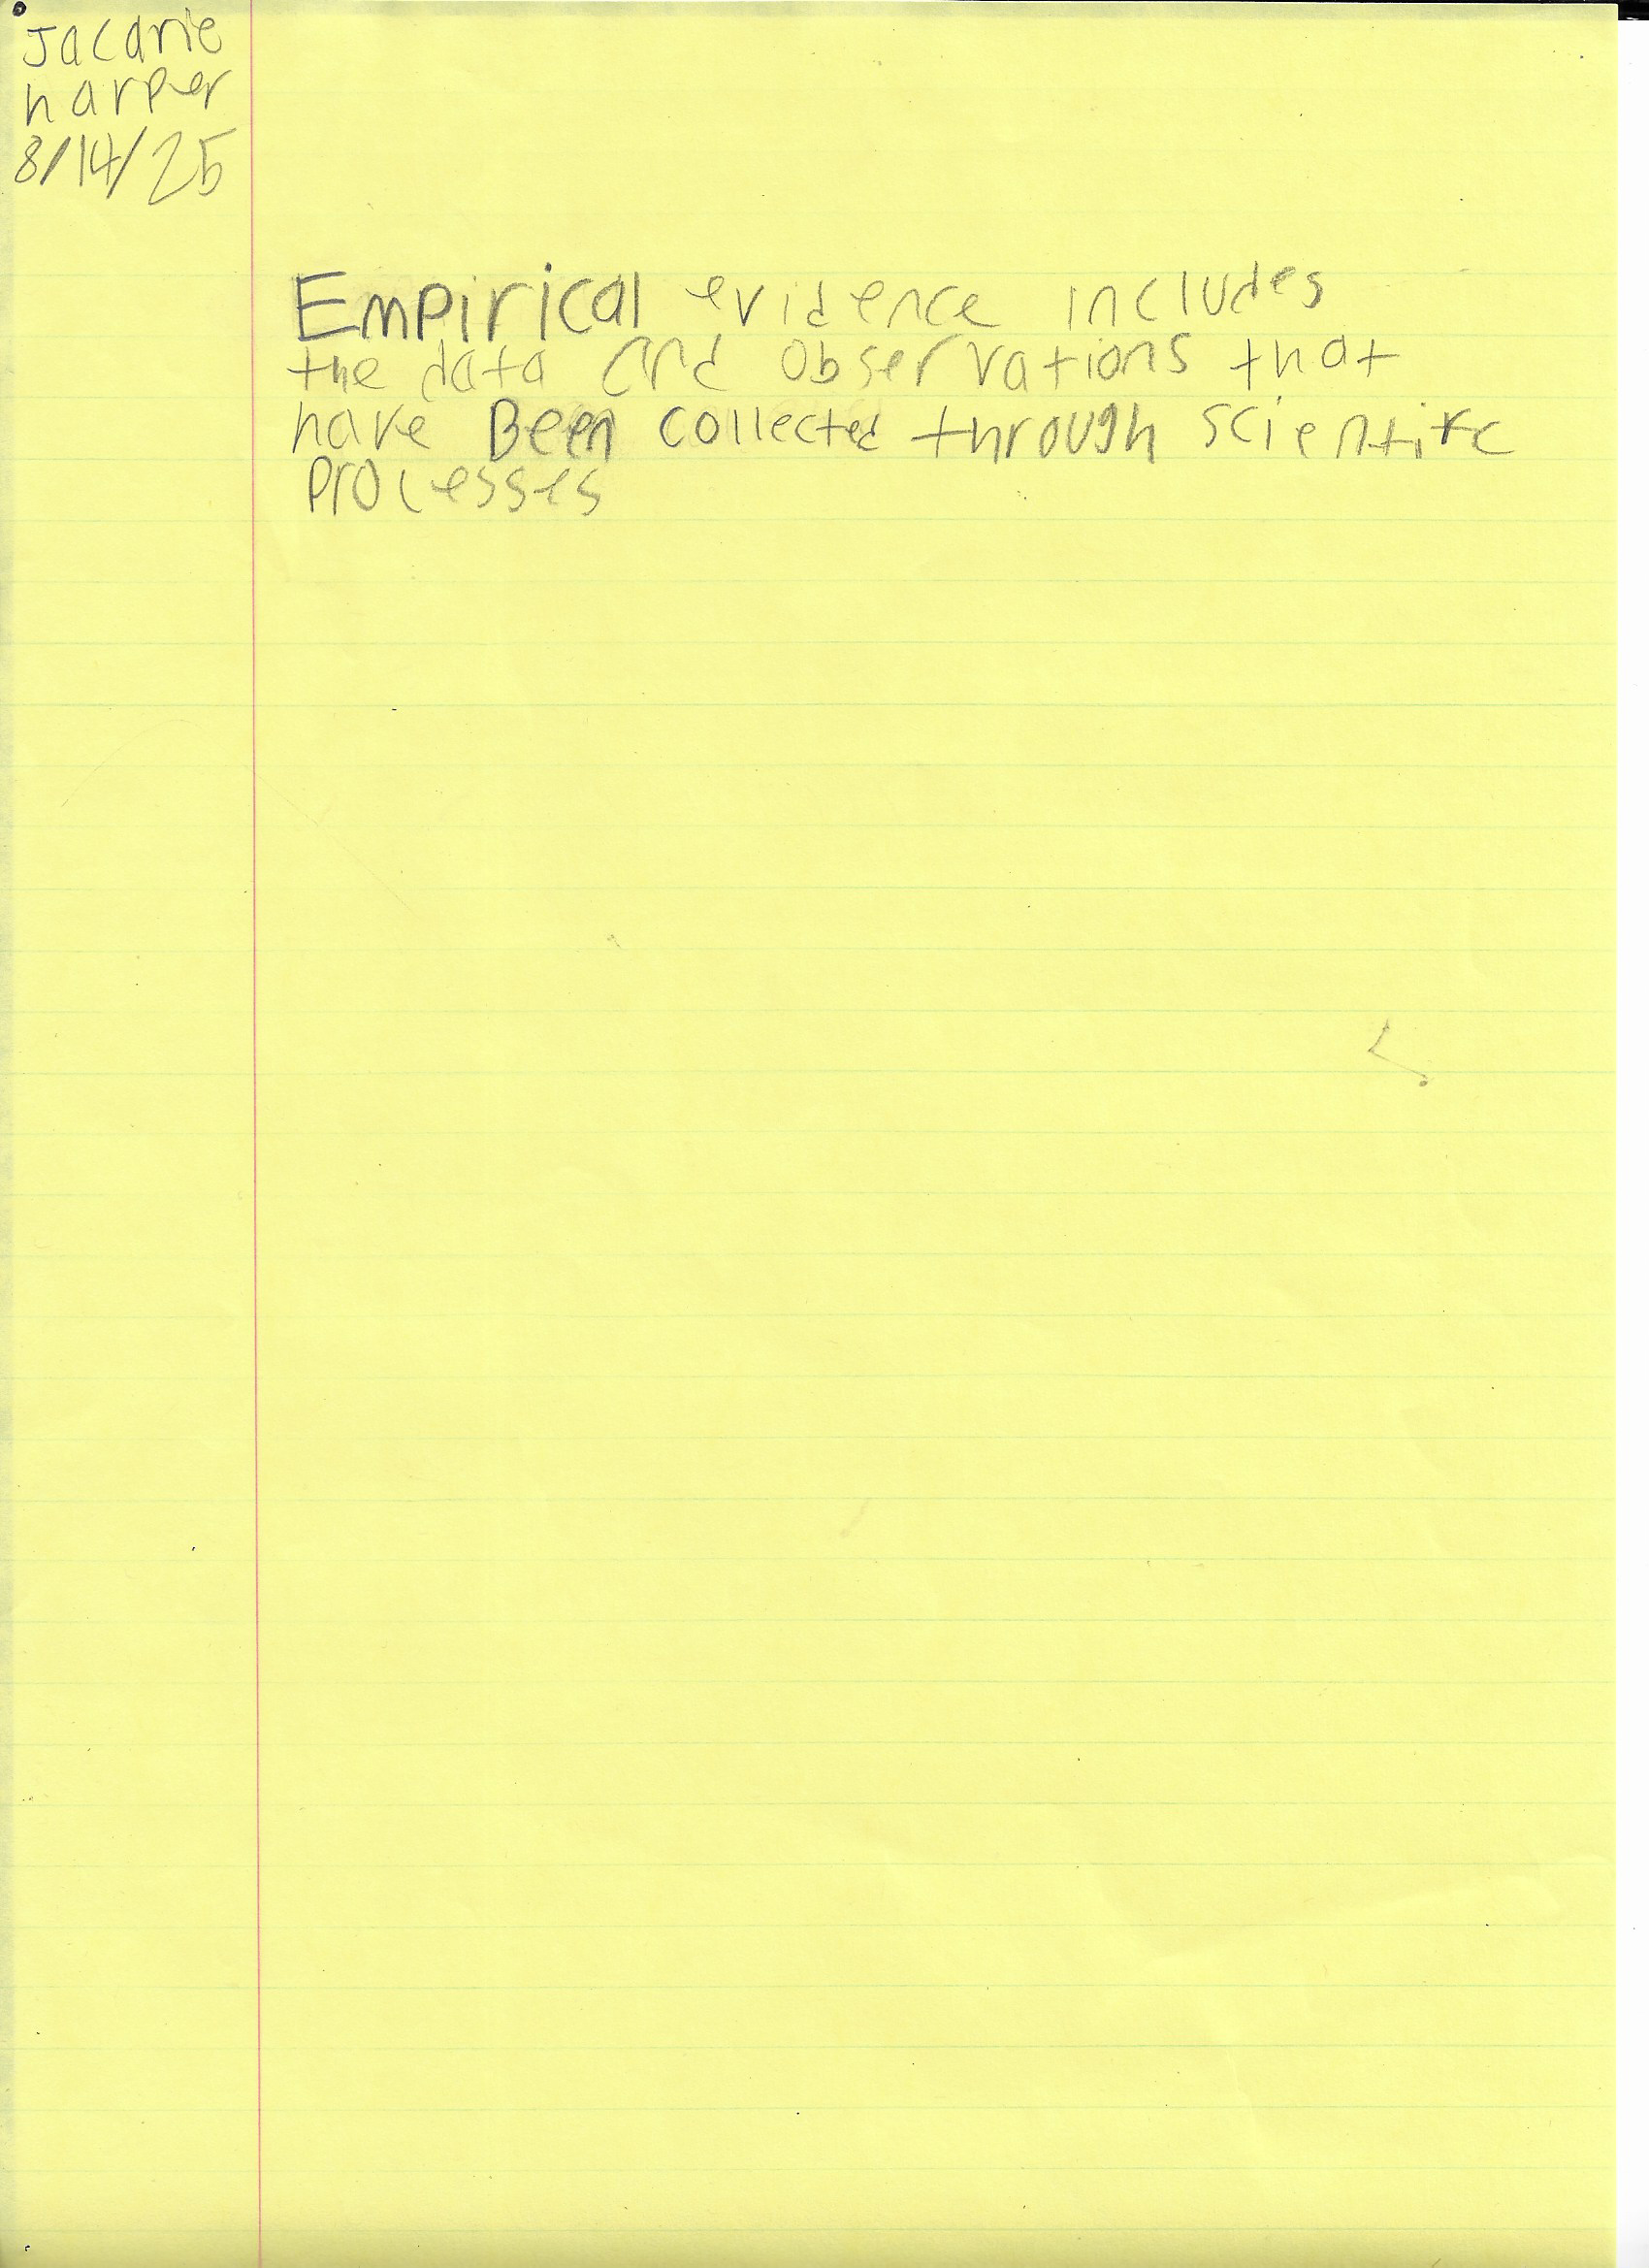 Jacarie
harper
8/14/25
Empirical evidence includes
the data and observations that
have Been collected through scientific
processes